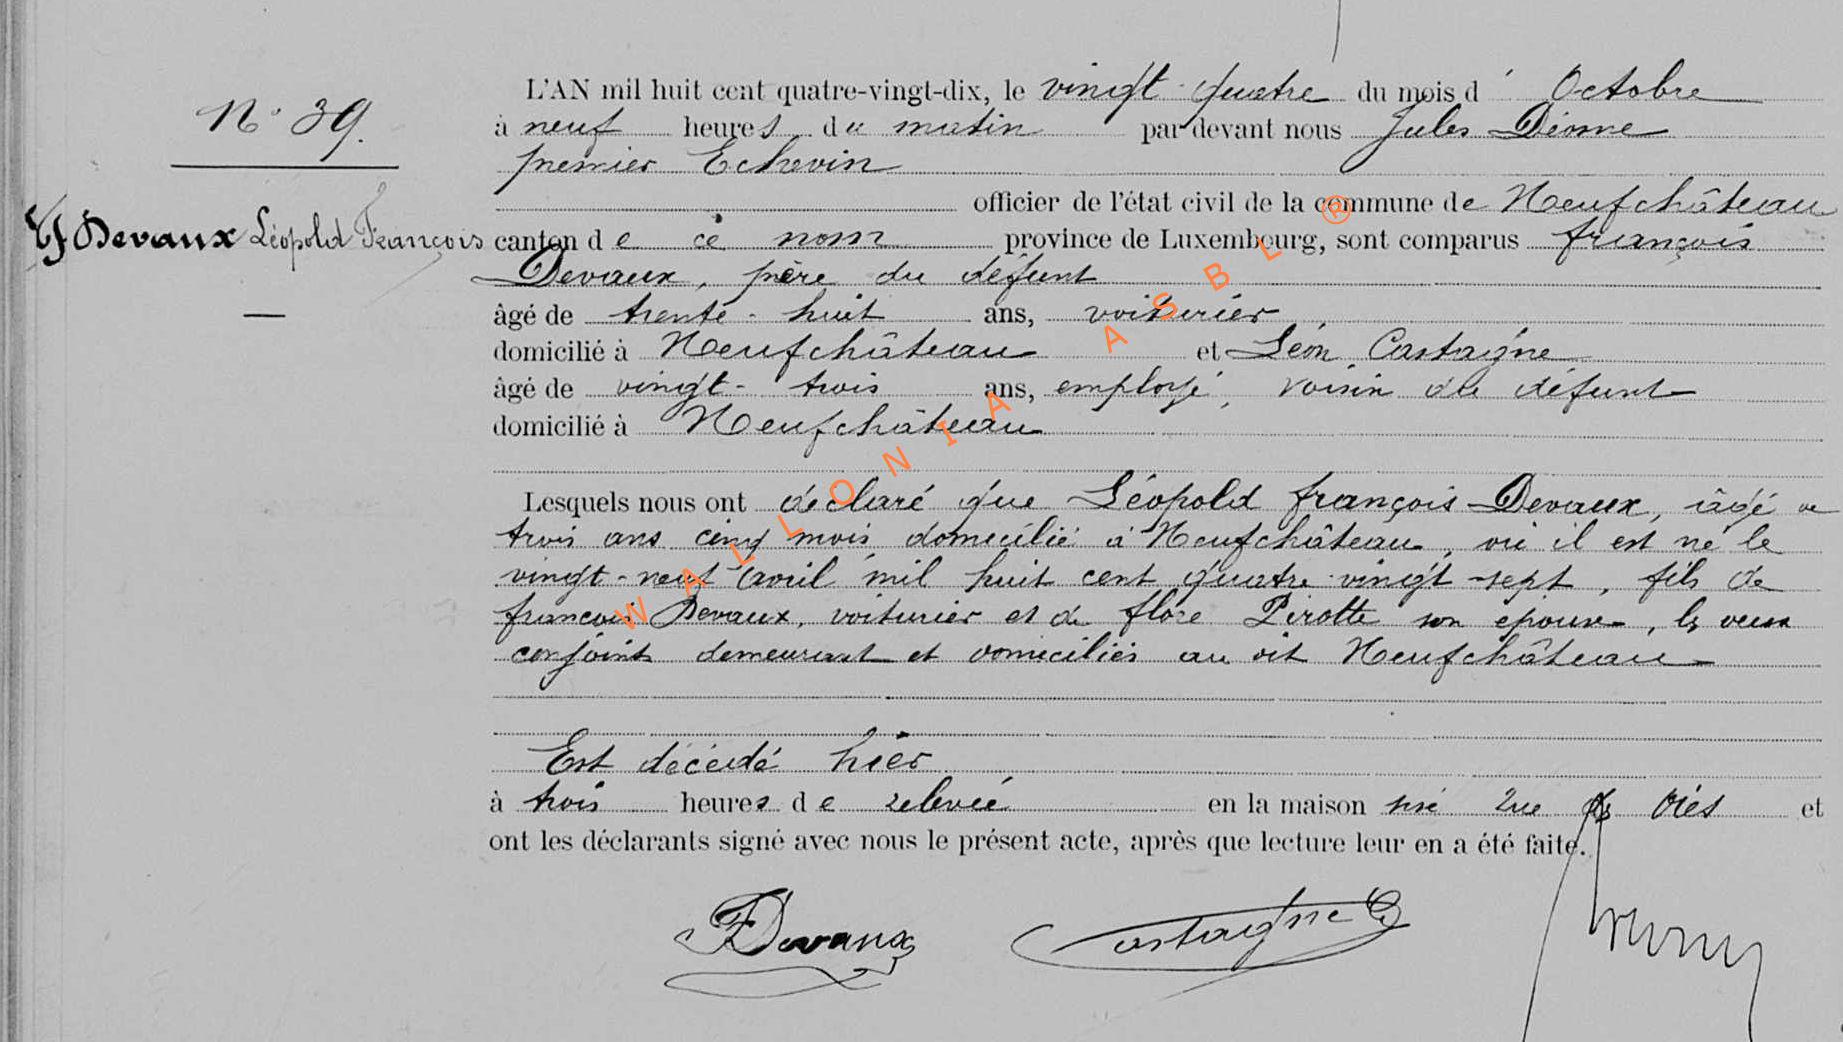 N° 39.
Devaux Léopold François
L'AN mil huit cent quatre-vingt-dix, le vingt-quatre du mois d' Octobre
à neuf heures du matin par devant nous Jules Dérome
premier Echevin
officier de l'état civil de la commune de Neufchâteau
canton de ce nom province de Luxembourg, sont comparus françois
Devaux, père du défunt
âgé de trente-huit ans, voiturier,
domicilié à Neufchâteau et Léon Castaigne
âgé de vingt-trois ans, employé, voisin du défunt
domicilié à Neufchâteau
Lesquels nous ont déclaré que Léopold françois Devaux, âgé de
trois ans cinq mois domicilié à Neufchâteau, où il est né le
vingt-neuf avril mil huit cent quatre-vingt-sept, fils de
francois Devaux, voiturier et de flore Pirotte son épouse, les deux
conjoints demeurant et domiciliés au dit Neufchâteau
Est décédé hier
à trois heures de relevée en la maison sise rue et
ont les déclarants signé avec nous le présent acte, après que lecture leur en a été faite.
F Devaux Castaigne
WALLONIA ASBL ®